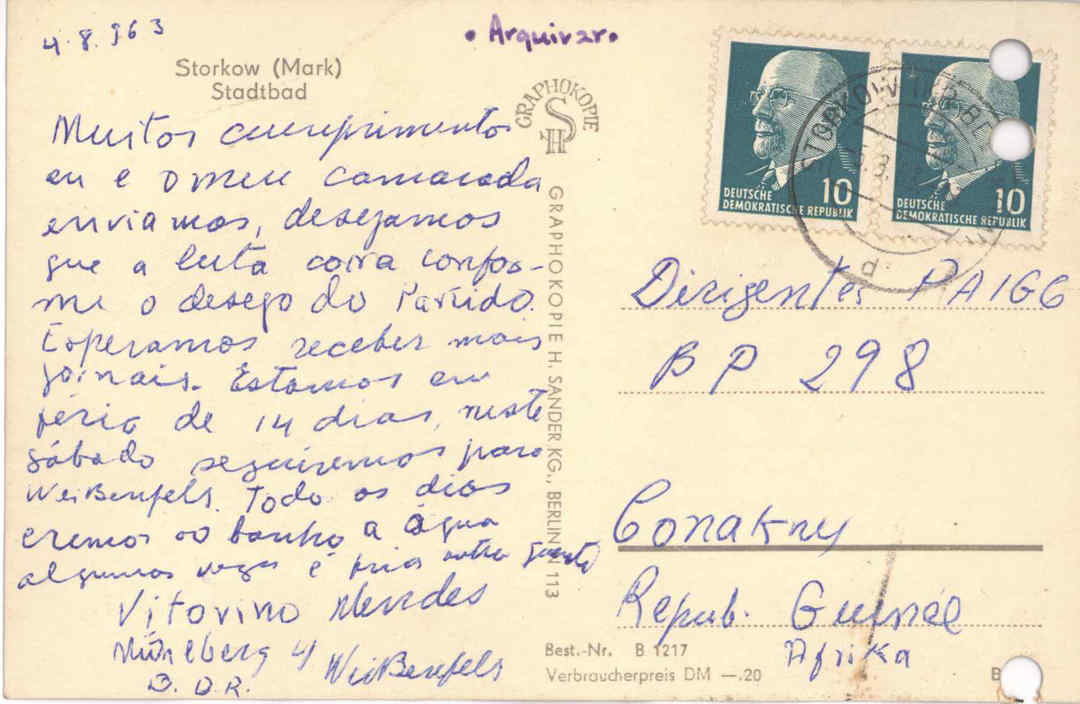 4.8.963
• Arquivar •
Storkow (Mark)
Stadtbad
Muitos cumprimentos
eu e o meu camarada
enviamos, desejamos
que a luta corra confor-
me o desego do Partido.
Esperamos receber mais
jornais. Estamos em
féria de 14 dias, neste
sábado seguiremos para
Weißenfels. Todo os dias
eremos ao banho a água
algumas vezes é fria outra quente
Vitorino Mendes
4 Weißenfels
D.D.R.
GRAPHOKOPIE
HS
GRAPHOKOPIE H. SANDER KG., BERLIN N 113
DEUTSCHE
DEMOKRATISCHE REPUBLIK
10
DEUTSCHE
DEMOKRATISCHE REPUBLIK
10
STORKOW
d
Dirigentes PAIGC
BP 298
Conakry
Repub. Guinée
Afrika
Best.-Nr. B 1217
Verbraucherpreis DM —.20
B